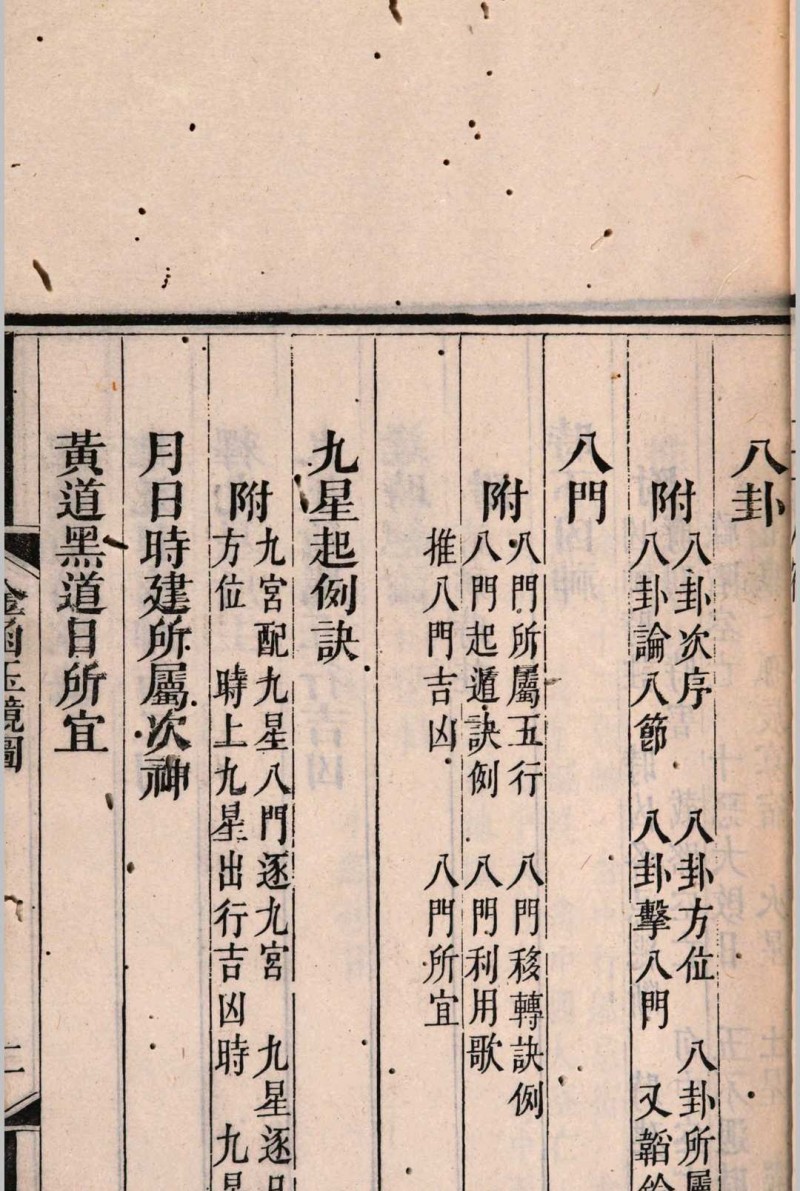 八卦
附
八卦次序　八卦方位　八卦所屬
八卦論八節　八卦擊八門　又韜
八門
附
八門所屬五行　八門移轉訣例
八門起遁訣例　八門利用歌
推八門吉凶　八門所宜
九星起例訣
附
九宮配九星八門逐九宮　九星逐日
方位　時上九星出行吉凶時　九星
月日時建所屬次神
黃道黑道日所宜
金函玉鏡圖
二